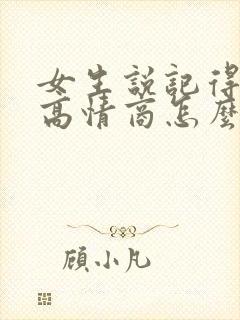 女生説記得
高情商怎麼
顧小凡